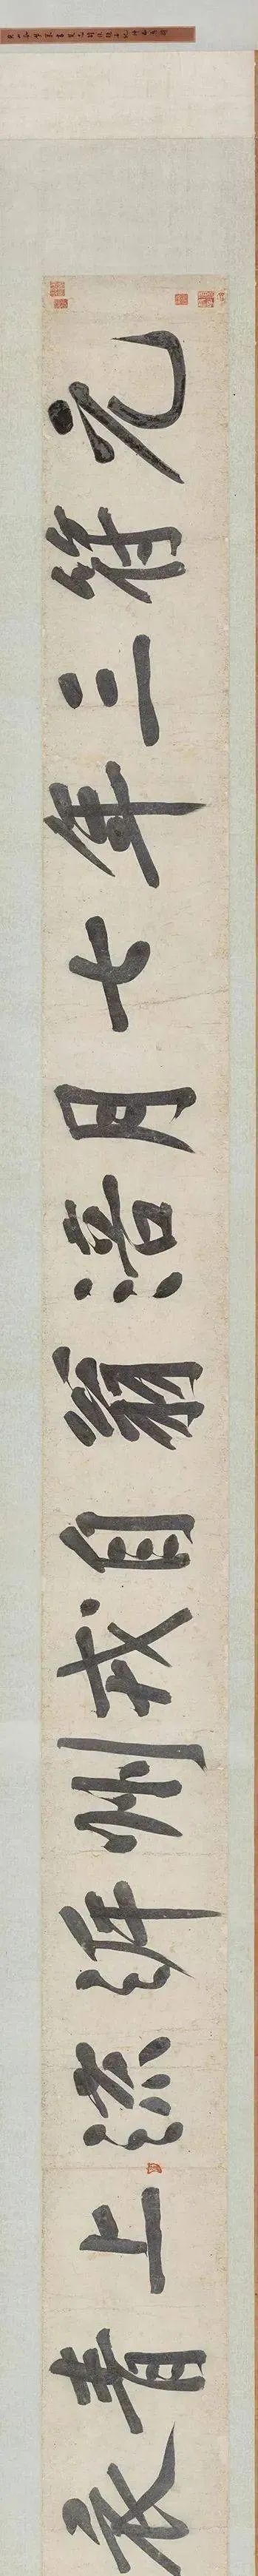 元符三年七月涪翁自戎州泝流上青衣